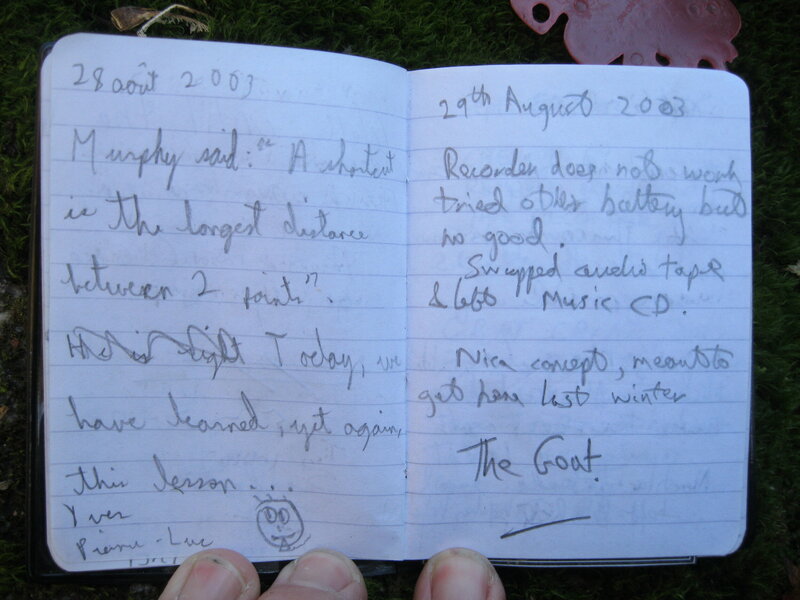 28 août 2003
Murphy said: " A shortcut
is the longest distance
between 2 points".
He is right Today, we
have learned, yet again,
this lesson...
Yves
Pierre-Luc
29th August 2003
Recorder does not work
tried other battery but
no good.
Swapped audio tape
& left Music CD.
Nice concept, meant to
get here last winter
The Goat.